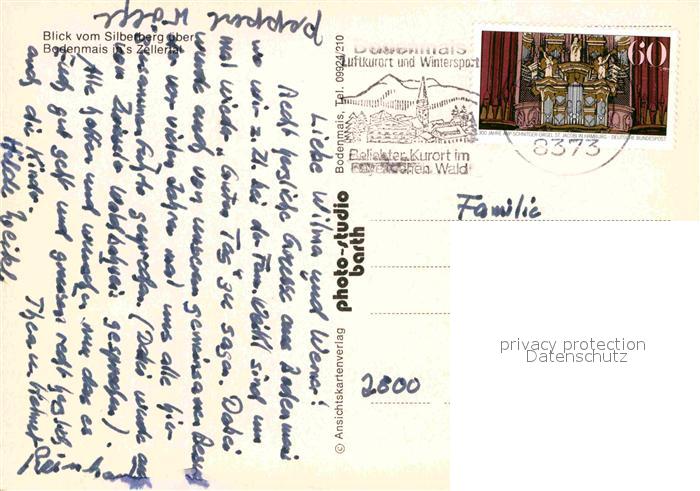 Blick vom Silberberg über
Bodenmais in's Zellertal
Bodenmais
Luftkurort und Wintersport
Beliebter Kurort im
Bayerischen Wald
8373
60
300 JAHRE ARP SCHNITGER-ORGEL ST. JACOBI IN HAMBURG DEUTSCHE BUNDESPOST
Bodenmais, Tel. 09924/210
photo-studio
barth
© Ansichtskartenverlag
Familie
2800
privacy protection
Datenschutz
Liebe Wilma und Werner!
Recht herzliche Grüsse aus Bodenmais
wo wir z. Zt. bei der Fam. Weikl sind um
mal wieder "Guten Tag" zu sagen. Dabei
wurde auch von unserem gemeinsamen Besuch
vor vielen Jahren mal uns alle hier
gesprochen. (Dabei wurde auch
von
gesprochen).
Wir hoffen und wünschen nur das es
Euch gut geht und grüssen recht herzlich
auch die Kinder